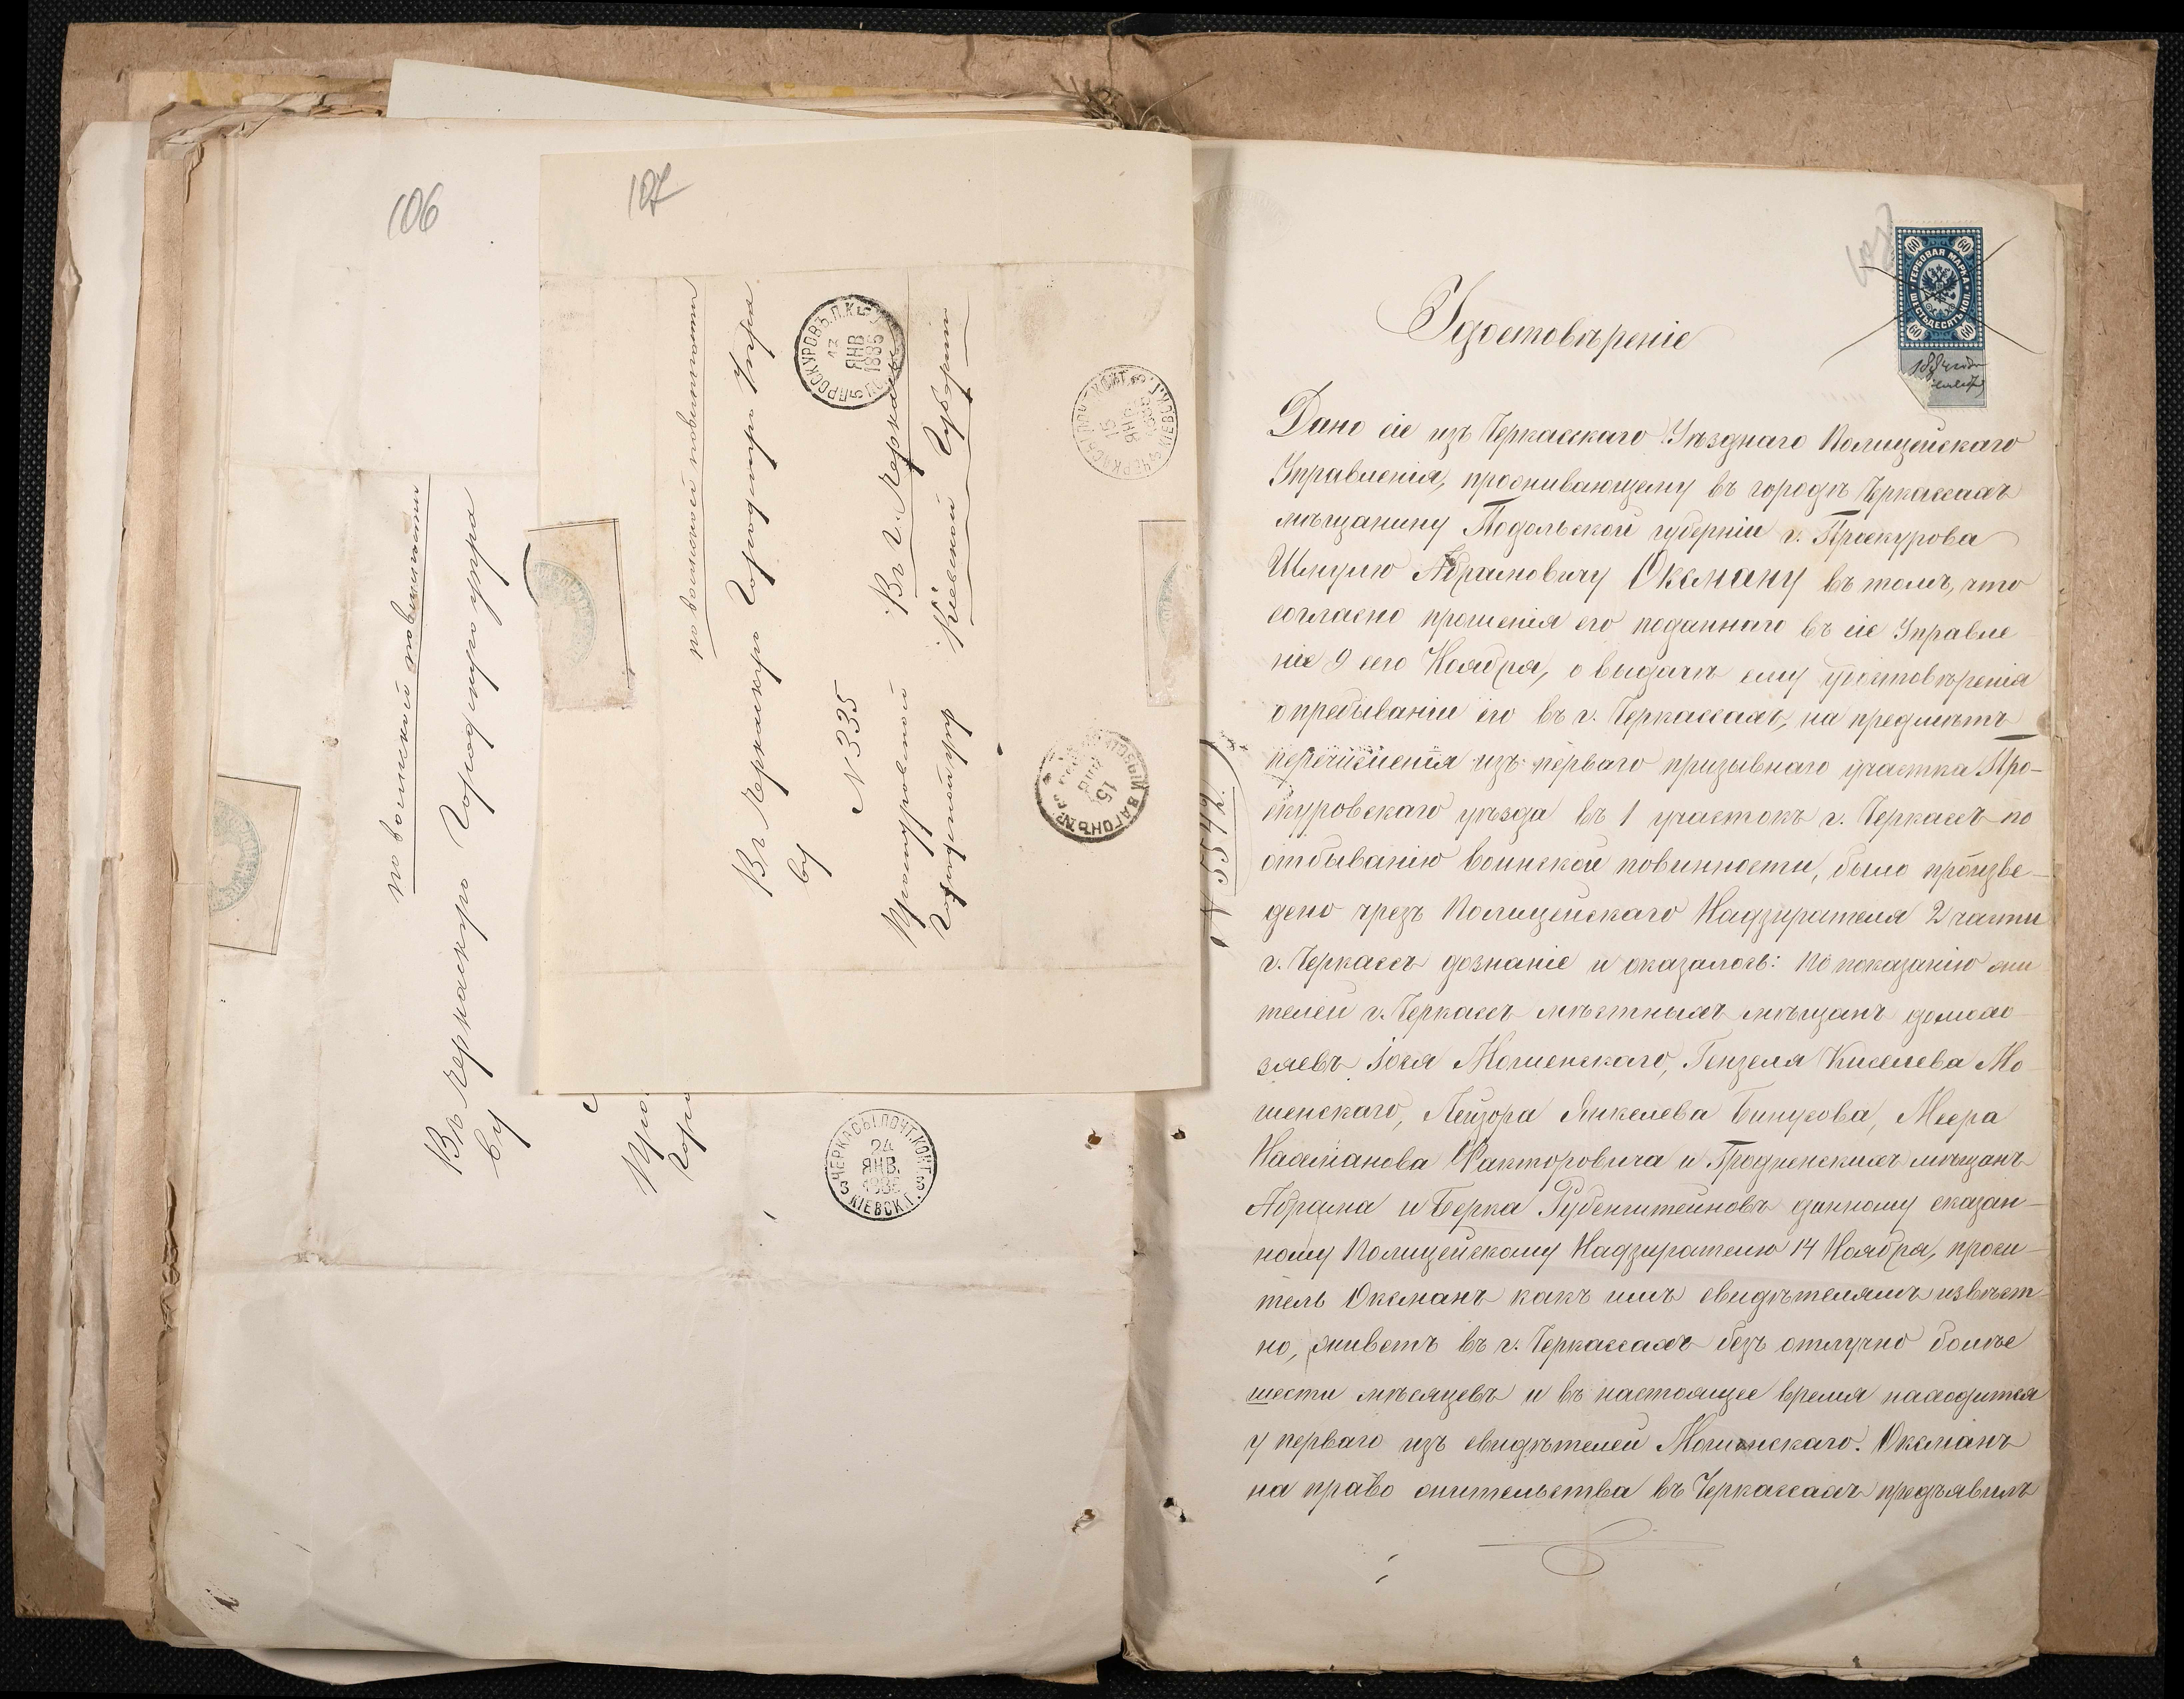 106
по воинской повинности
Въ Черкасскую Городскую Упра
ву
ЧЕРКАСЫ ПОЧТ. КОНТ.
24
ЯНВ.
1886
3 КІЕВСК. Г. 3
107
по воинской повинности
Въ Черкасскую Городскую Упра
ву
N 335
Проскуровской
Городской упр
Въ г. Черкассы
Кіевской Губерніи
ПРОСКУРОВЪ П.К.
13
ЯНВ
1886
15
ЯНВ
ВАГОНЪ №
N 5542
Удостовѣреніе
ГЕРБОВАЯ МАРКА
ШЕСТЬДЕСЯТЪ КОП.
60 60
60 60
Дано сіе изъ Черкасскаго Уѣзднаго Полицейскаго
Управленія, проживающему въ городѣ Черкассахъ
мѣщанину Подольской губерніи г. Проскурова
Шмулю Абрамовичу Оксману въ томъ, что
согласно прошенія его поданнаго въ сіе Управле
ніе 9 сего Ноября, о выдачѣ ему удостовѣренія
о пребываніи его въ г. Черкассахъ, на предметъ
перечисленія изъ перваго призывнаго участка Про-
скуровскаго уѣзда въ 1 участокъ г. Черкассъ по
отбыванію воинской повинности, было произве-
дено чрезъ Полицейскаго Надзирателя 2 части
г. Черкассъ дознаніе и оказалось: по показанію жи
телей г. Черкассъ мѣстныхъ мѣщанъ домохо
зяевъ Іося Мошенскаго, Гензеля Киселева Мо
шенскаго, Лейзора Янкелева Бинусова, Меера
Нахманова Факторовича и Гродненскихъ мѣщанъ
Абрама и Берка Рубенштейновъ данному сказан-
ному Полицейскому Надзирателю 14 Ноября, проси-
тель Оксманъ какъ имъ свидѣтелямъ извѣст-
но, живетъ въ г. Черкассахъ безъ отлучно болѣе
шести мѣсяцевъ и въ настоящее время находится
у перваго изъ свидѣтелей Мошенскаго. Оксманъ
на право жительства въ Черкассахъ предъявилъ